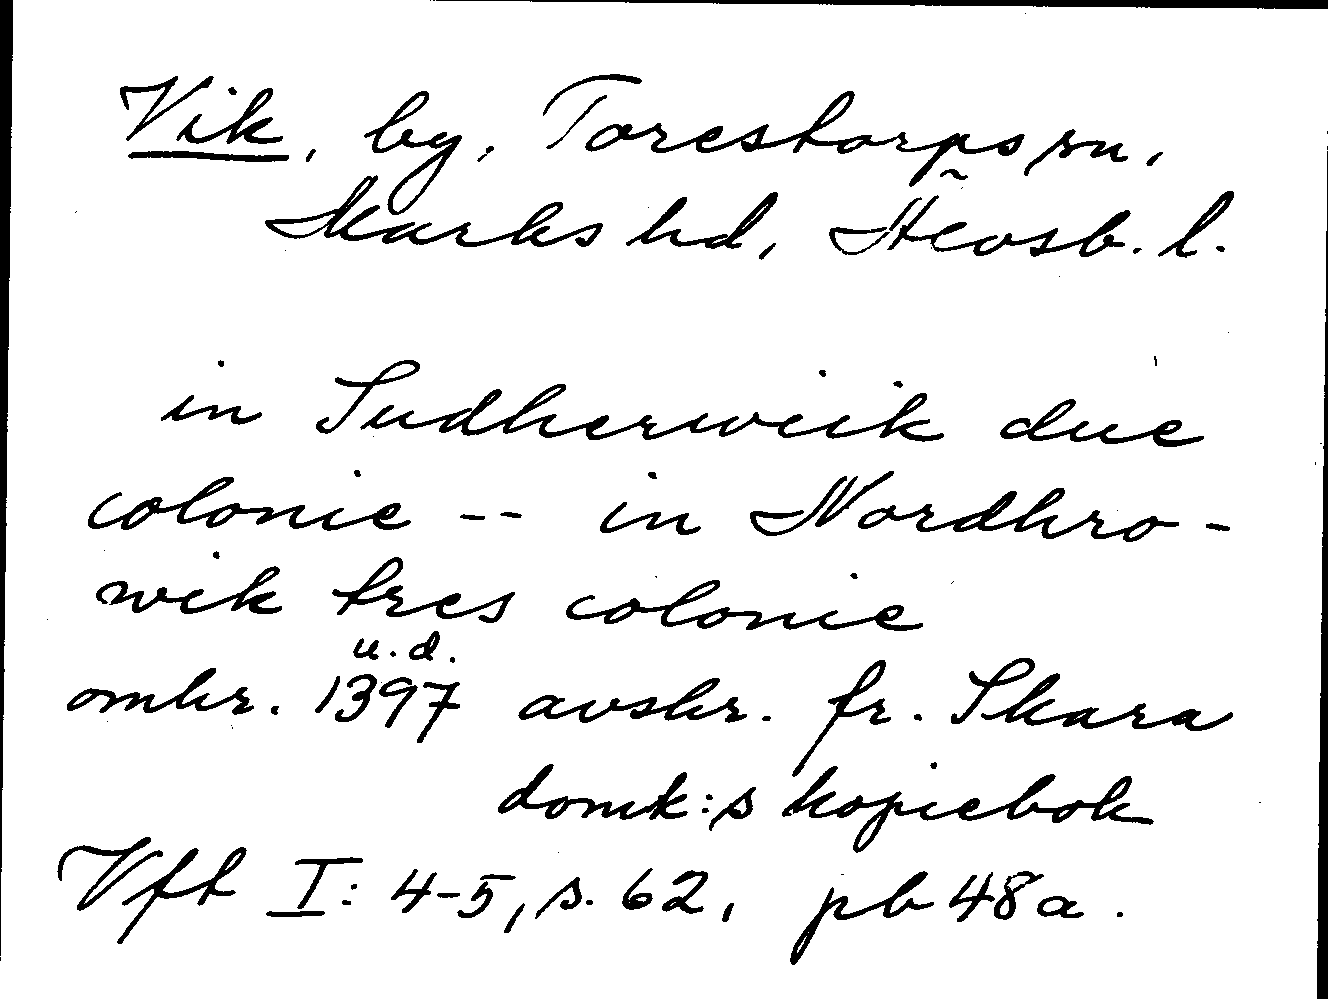 Vik, by, Torestorps sn,
Marks hd, Älvsb. l.
in Sudherwiik due
colonie -- in Nordhro-
wik tres colonie
u.d.
omkr. 1397 avskr. fr. Skara
domk:s kopiebok
Vft I: 4-5, s. 62, pb 48a.